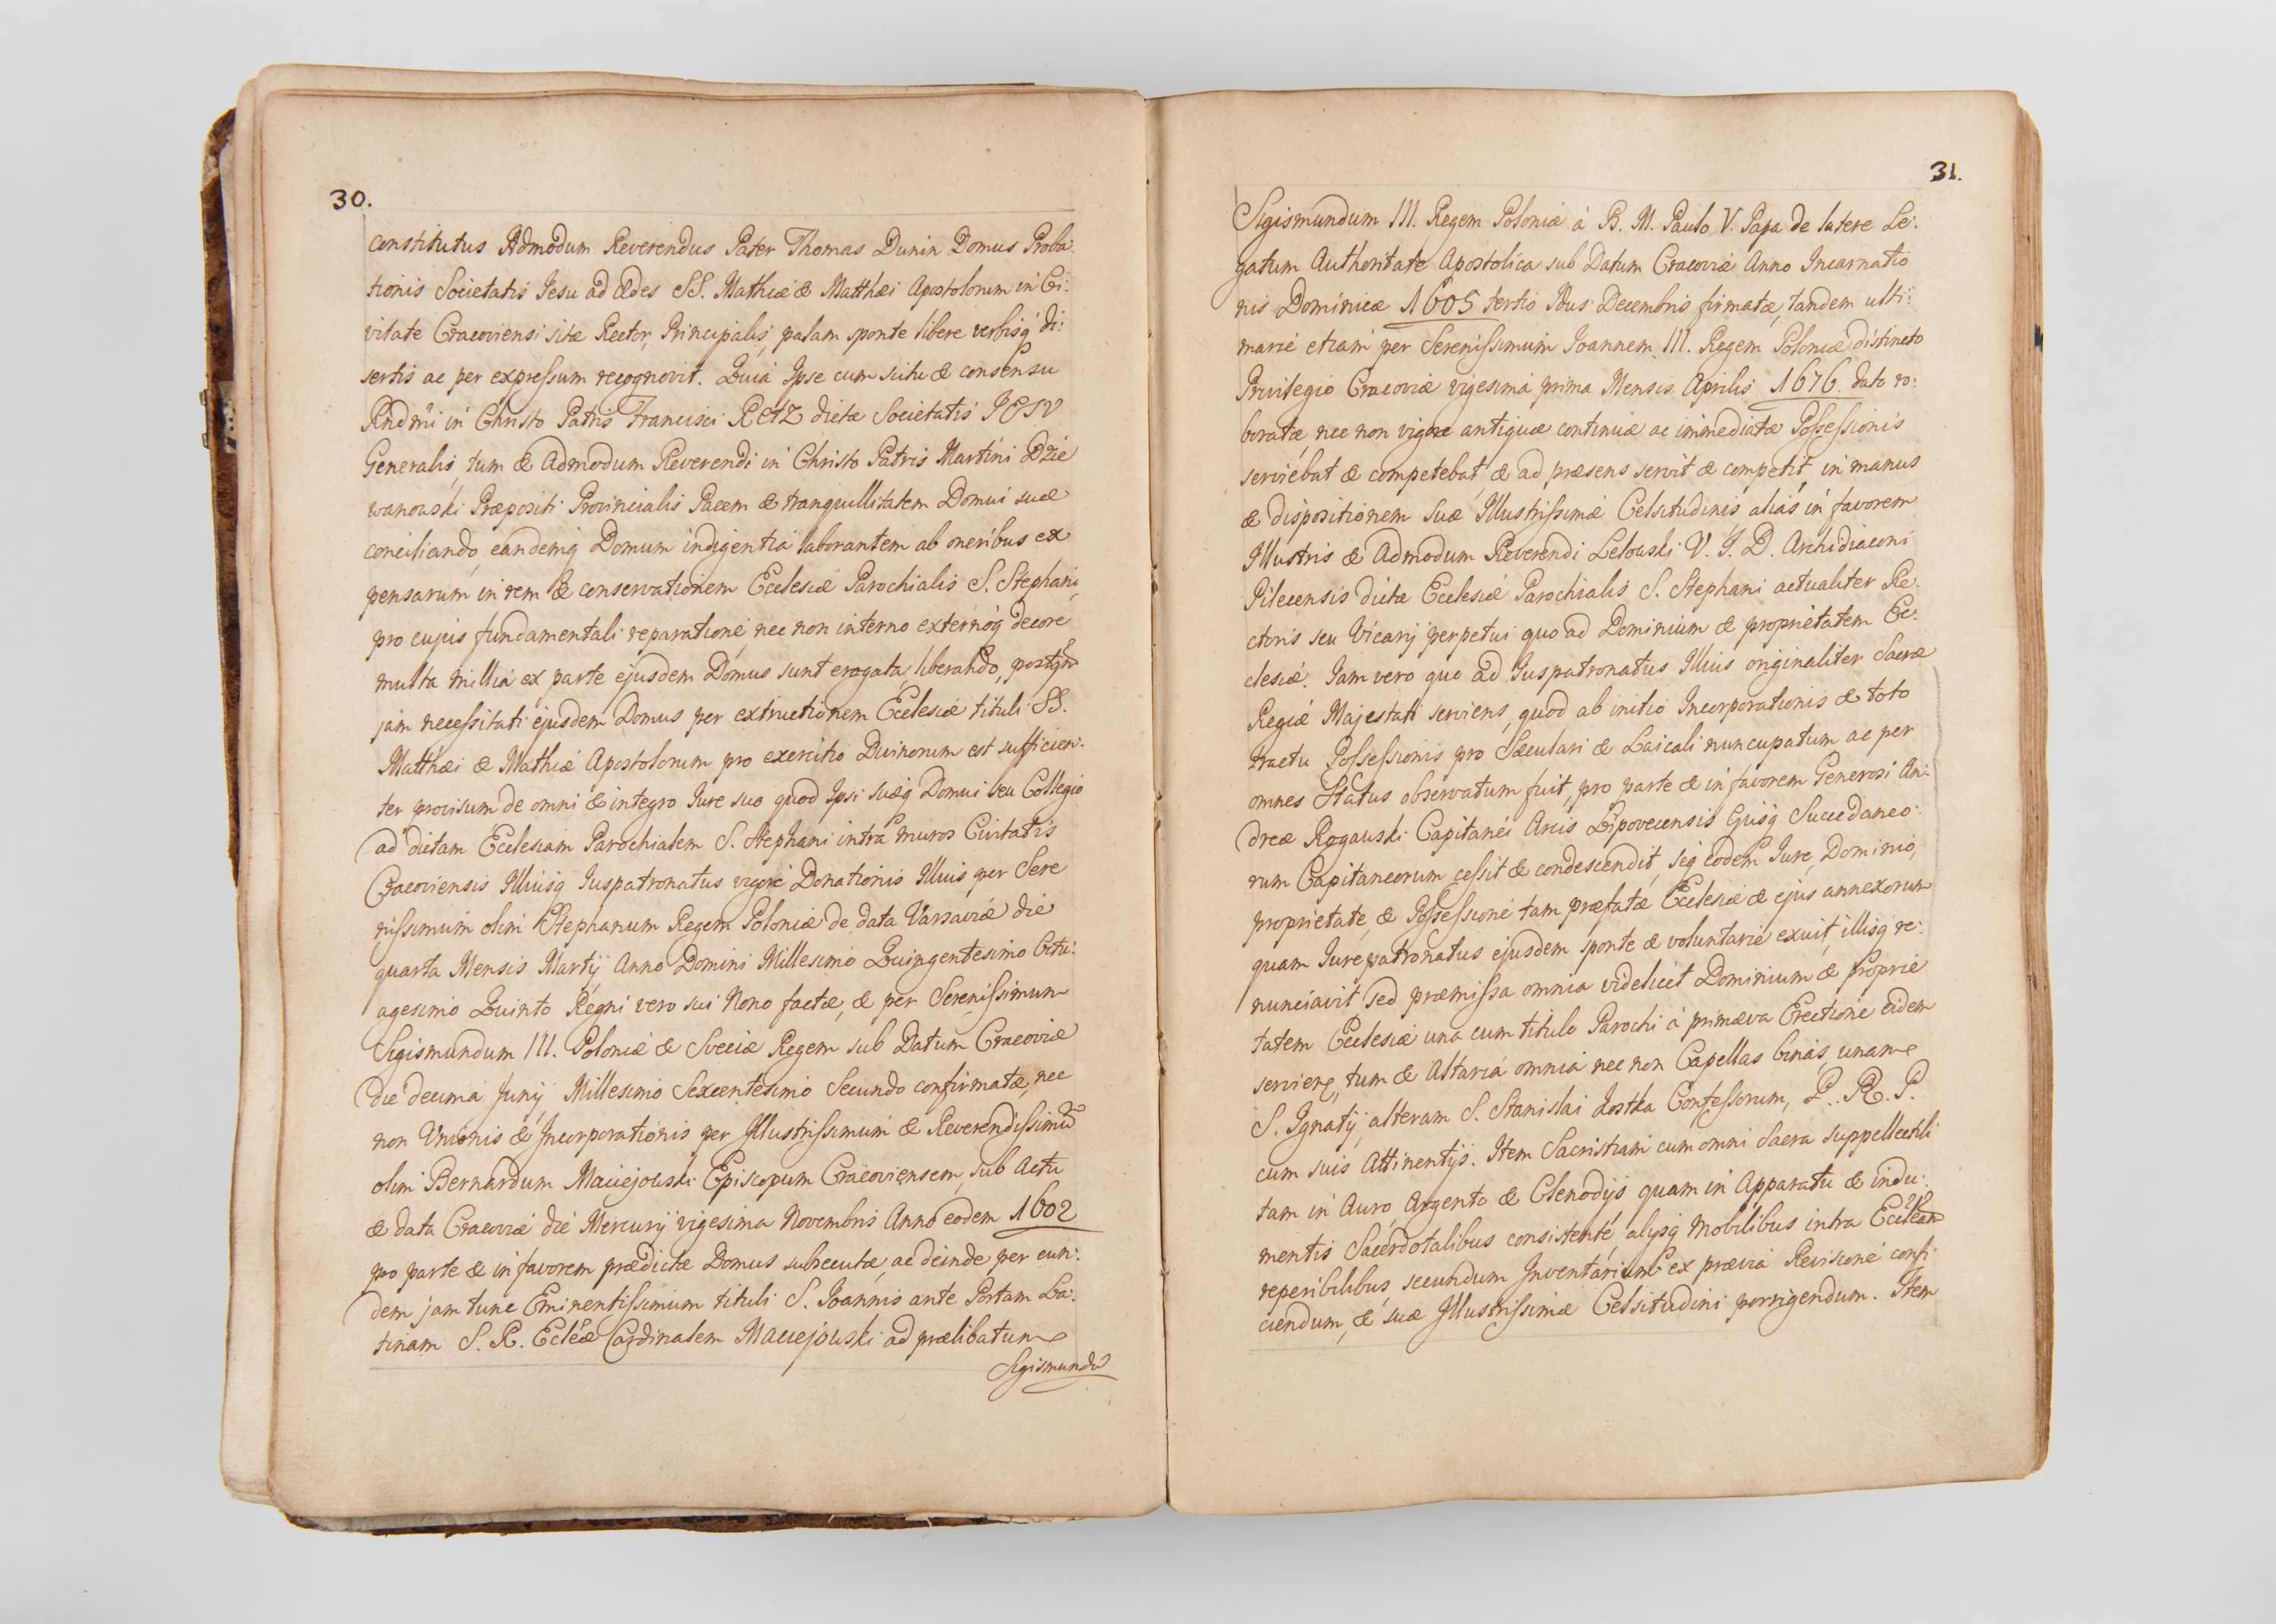 30.
constitutus Admodum Reverendus Pater Thomas Dunin Domus Proba:
tionis Societatis Iesu ad Ædes SS. Mathiæ & Matthæi Apostolorum in Ci:
vitate Cracoviensi sitæ Rector, Principalis, palam sponte libere verbisq di:
sertis ac per expressum recognovit. Quia Ipse cum scitu & consensu
Rndmi in Christo Patris Francisci Retz dictæ Societatis IESV
Generalis, tum & Admodum Reverendi in Christo Patris Martini Dzie
wanowski Præpositi Provincialis Pacem & tranquillitatem Domui suæ
conciliando, eandemq Domum indigentia laborantem ab oneribus ex
pensarum in rem & conservationem Ecclesiæ Parochialis S. Stephani,
pro cujus fundamentali reparatione nec non interno externoq decore
multa millia ex parte ejusdem Domus sunt erogata, liberando, postqm
jam necessitati ejusdem Domus per extructionem Ecclesiæ tituli SS.
Matthæi & Mathiæ Apostolorum pro exercitio Divinorum est sufficien:
ter provisum de omni & integro Iure suo quod Ipsi suæq Domui seu Collegio
ad dictam Ecclesiam Parochialem S. Stephani intra muros Civitatis
Cracoviensis Illiusq Iuspatronatus vigore Donationis Illius per Sere
nissimum olim Stephanum Regem Poloniæ de data Varsaviæ die
quarta Mensis Martij Anno Domini Millesimo Quingentesimo Octu:
agesimo Quinto Regni vero sui Nono factæ, & per Serenissimum
Sigismundum III. Poloniæ & Sveciæ Regem sub Datum Cracoviæ
die decima Junij Millesimo Sexcentesimo Secundo confirmatæ, nec
non Unionis & Incorporationis per Illustrissimum & Reverendissimu
olim Bernardum Maciejowski Episcopum Cracoviensem, sub Actu
& data Cracoviæ die Mercurij vigesima Novembris Anno eodem 1602
pro parte & in favorem prædictæ Domus subsecutæ, ac deinde per eun:
dem jam tunc Eminentissimum tituli S. Ioannis ante Portam La:
tinam S. R. Ecclæ Cardinalem Maciejowski ad prælibatum
Sigismundu
31.
Sigismundum III. Regem Poloniæ à B. M. Paulo V. Papa de latere Le:
gatum Authoritate Apostolica sub Datum Cracoviæ Anno Incarnatio
nis Dominicæ 1605 tertio Idus Decembris firmatæ, tandem ulti:
marie etiam per Serenissimum Ioannem III. Regem Poloniæ distincto
Privilegio Cracoviæ vigesima prima Mensis Aprilis 1676. dato ro:
boratæ nec non vigore antiquæ continuæ ac immediatæ Possessionis
serviebat & competebat & ad præsens servit & competit, in manus
& dispositionem Suæ Illustrissimæ Celsitudinis alias in favorem
Illustris & Admodum Reverendi Lelowski V. I. D. Archidiaconi
Pilecensis dictæ Ecclesiæ Parochialis S. Stephani actualiter Re:
ctoris seu Vicarij perpetui quo ad Dominium & proprietatem Ec:
clesiæ. Iam vero quo ad Iuspatronatus Illius originaliter Sacræ
Regiæ Majestati serviens, quod ab initio Incorporationis & toto
tractu Possessionis pro Sæculari & Laicali nuncupatum ac per
omnes Status observatum fuit, pro parte & in favorem Generosi An:
dreæ Rogawski Capitanei Arcis Lipovecensis Ejusq Succedaneo:
rum Capitaneorum cessit & condescendit, seq eodem Iure, Dominio,
proprietate, & Possessione tam præfatæ Ecclesiæ & ejus annexorum
quam Iurepatronatus ejusdem sponte & voluntarie exuit, illisq re:
nunciavit sed præmissa omnia videlicet Dominium & proprie
tatem Ecclesiæ una cum titulo Parochi à primæva Erectione eidem
serviens, tum & Altaria omnia nec non Capellas binas, unam
S. Ignatij, alteram S. Stanislai Kostka Confessorum, P. R. P.
cum suis Attinentijs. Item Sacristiam cum omni Sacra suppellectili
tam in Auro, Argento & Clenodijs quam in Apparatu & indu:
mentis Sacerdotalibus consistente, alijsq mobilibus intra Eccleam
reperibilibus, secundum Inventarium ex prævia Revisione confi:
ciendum, & suæ Illustrissimæ Celsitudini porrigendum. Item